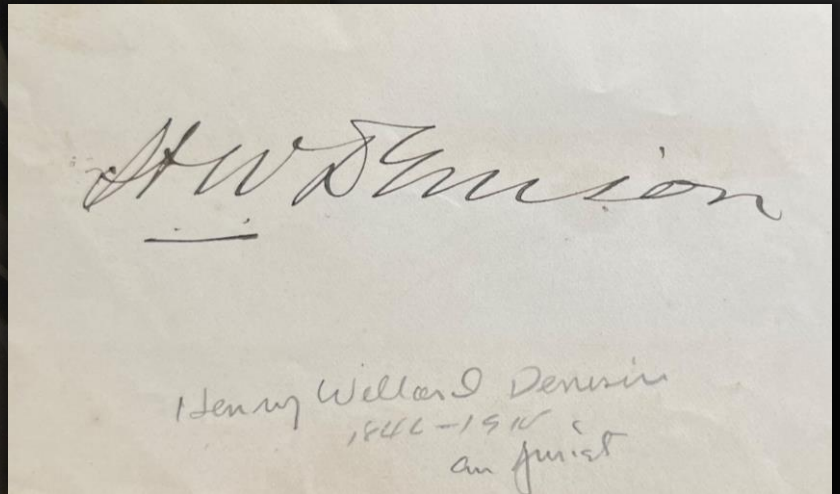 H W Denison
Henry Willard Denison
1846-1914
an jurist